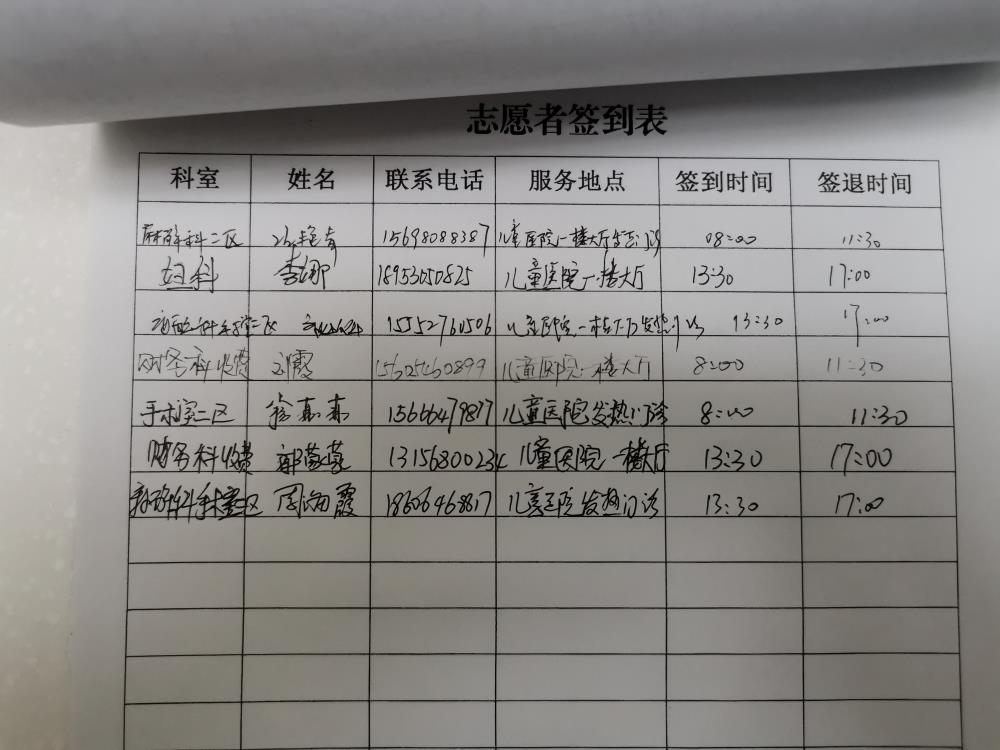 志愿者签到表
科室 姓名 联系电话 服务地点 签到时间 签退时间
麻醉科二区 15698088387 儿童医院一楼大厅 门诊 08:00 11:30
妇科 李娜 18953050825 儿童医院一楼大厅 13:30 17:00
二区 15552760506 儿童医院一楼 13:30 17:00
财务科收费 刘霞 儿童医院一楼大厅 8:00 11:30
手术室二区 15666479817 儿童医院发热门诊 8:00 11:30
财务科收费 郭蒙蒙 13156800234 儿童医院一楼大厅 13:30 17:00
麻醉科手术室二区 周海霞 18606468817 儿童医院发热门诊 13:30 17:00